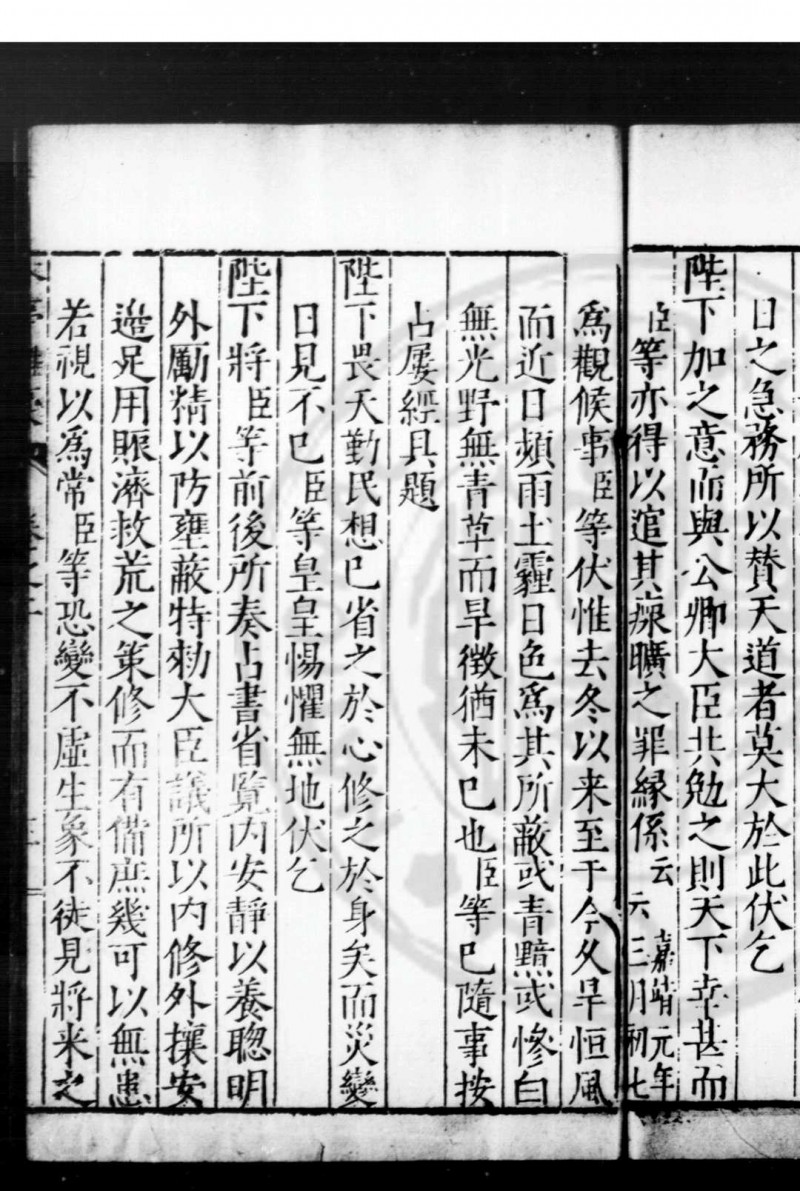 日之急務所以賛天道者莫大於此伏乞
陛下加之意而與公卿大臣共勉之則天下幸甚而
臣等亦得以逭其瘝曠之罪緣係云云 嘉靖元年三月初七
為觀候事臣等伏惟去冬以来至于今乆旱恒風
而近日頻雨土霾日色為其所蔽或青黲或慘白
無光野無青草而旱徴猶未巳也臣等巳隨事按
占屢經具題
陛下畏天勤民想巳省之於心修之於身矣而災變
日見不巳臣等皇皇惕懼無地伏乞
陛下將臣等前後所奏占書省覽内安靜以養聦明
外勵精以防壅蔽特勑大臣議所以内修外攘安
邉足用賑濟救荒之策修而有備庶幾可以無患
若視以為常臣等恐變不虚生象不徒見將来之